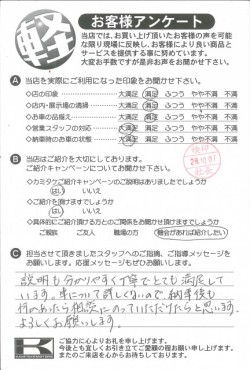 軽 お客様アンケート
当店では、お買い上げ頂いたお客様の声を可能
な限り現場に反映し、お客様により良い商品と
サービスを提供する事に努めています。
大変お手数ですが是非お声をお聞かせ下さい。
A 当店を実際にご利用になった印象をお聞かせ下さい。
◇店の印象 大満足 満足 ふつう やや不満 不満
◇店内・展示場の清掃 大満足 満足 ふつう やや不満 不満
◇お車の品揃え 大満足 満足 ふつう やや不満 不満
◇営業スタッフの対応 大満足 満足 ふつう やや不満 不満
◇納車時のお車の状態 大満足 満足 ふつう やや不満
B 当店はご紹介を大切にしております。
ご紹介キャンペーンについてお聞かせ下さい。
◇カミタケご紹介キャンペーンのご説明はありましたでしょうか
はい いいえ
◇ご紹介を頂けますでしょうか
はい いいえ
◇具体的にご紹介頂ける方とのご関係をお聞かせ頂けますでしょうか
ご親族 ご友人 職場の方 機会があれば紹介したい
C 担当させて頂きましたスタッフへのご指摘、ご指導メッセージを
お願いします。応援メッセージもぜひお願いします。
説明も分かりやすく丁寧でとても満足して
います。車について詳しくないので、納車後も
何かあったら相談にのっていただけたらと思います。
よろしくお願いします。
K ご協力に心よりお礼を申し上げます。
今後とも宜しくお引き立てご愛顧の程お願い申し上げます。
またのご来店を心からお待ちしております。